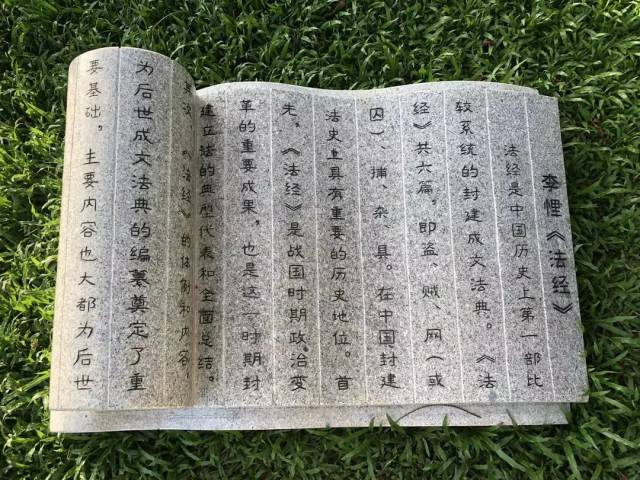 李悝《法经》
法经是中国历史上第一部比
较系统的封建成文法典。《法
经》共六篇。即盗、贼、网（或
囚）、捕、杂、具。在中国封建
法史上具有重要的历史地位。首
先，《法经》是战国时期政治变
革的重要成果，也是这一时期封
建立法的典型代表和全面总结。
其次，《法经》的体例和内容
为后世成文法典的编纂奠定了重
要基础，主要内容也大都为后世